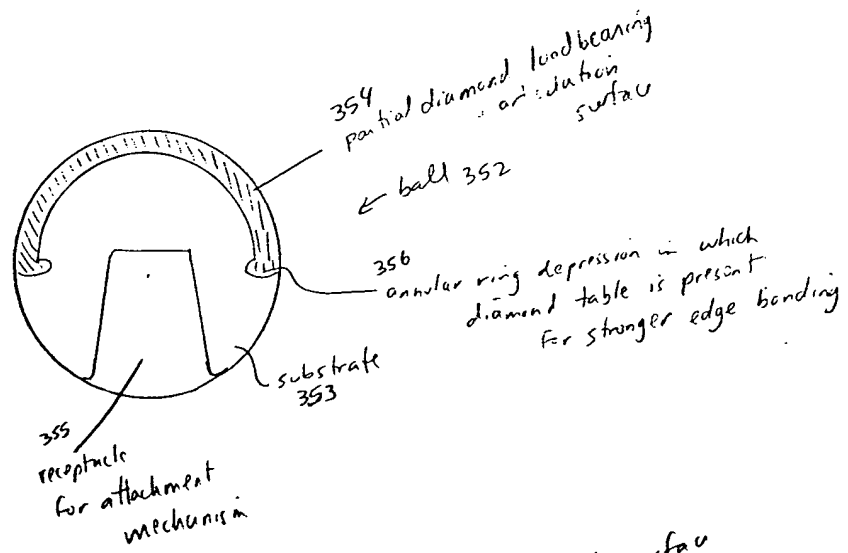 354
partial diamond loadbearing
articulation
surface
ball 352
356
annular ring depression in which
diamond table is present
For stronger edge bonding
substrate
353
355
receptacle
for attachment
mechanism